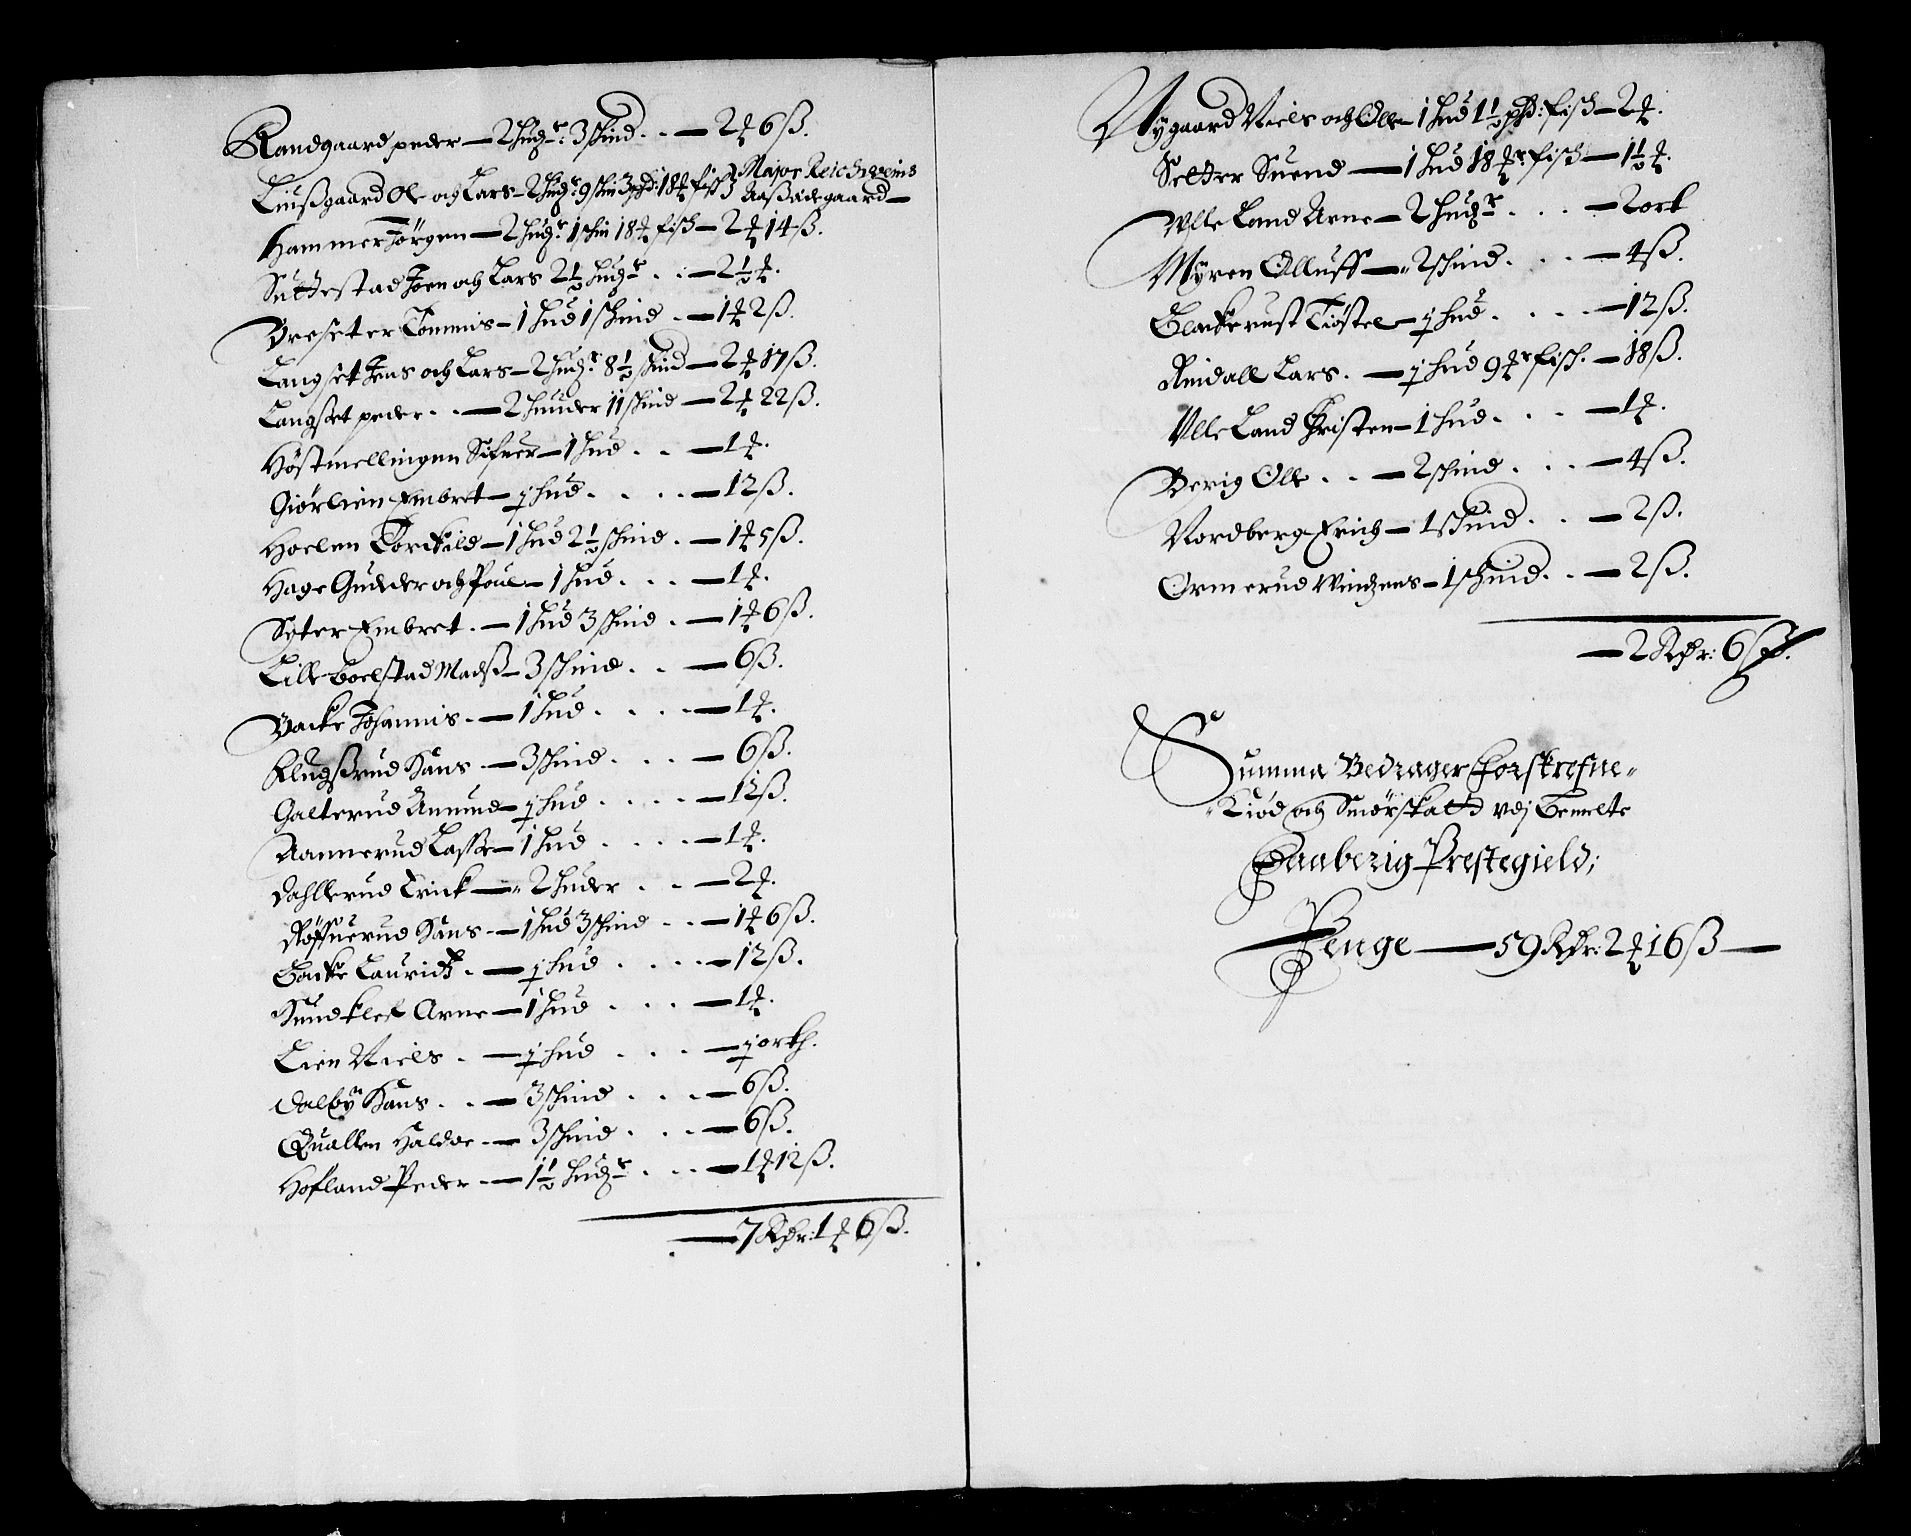 Randgaard peder — 2 hudr: 3 skind . . — 2 ℔ 6 ß.
Liußgaard Ole och Lars — 2 hudr: 9 skin 3 pd: 18 ℔ fisk } Major Reichweins Aaßædegaard —
Hammer Jörgen — 2 hudr: 1 skin 18 ℔ fisk — 2 ℔ 14 ß.
Suttestad Joen och Lars 2½ hudr . . — 2½ ℔.
Breseter Tommis — 1 hud 1 skind . — 1 ℔ 2 ß.
Langset Jens och Lars — 2 hudr: 8½ skind — 2 ℔ 17 ß.
Langset peder . . — 2 huuder 11 skind — 2 ℔ 22 ß.
Höstmellingen Sifuer — 1 hud . . — 1 ℔.
Giörlien Embret — j hud . . . . — 12 ß.
Hoelen Torckild — 1 hud 2½ skind . — 1 ℔ 5 ß.
Hage Gudder och Poul — 1 hud . . . — 1 ℔.
Syter Embret . — 1 hud 3 skind . — 1 ℔ 6 ß.
Lille boelstad Madß — 3 skind . . — 6 ß.
Backe Johannis . — 1 hud . . . . — 1 ℔.
Klugßrud Hans . — 3 skind . . . — 6 ß.
Galterud Amund — j hud . . . . — 12 ß.
Aannerud Lasse — 1 hud . . . . — 1 ℔.
Dahlerud Erick — 2 huder . . — 2 ℔.
Röffnerud Hans . — 1 hud 3 skind . . — 1 ℔ 6 ß.
Backe Lauridz . — j hud . . . . — 12 ß.
Sundklef Arne — 1 hud . . . — 1 ℔.
Lien Niels . — j hud . . . — j ork.
Dalby Hans . . — 3 skind . . . — 6 ß.
Quallen Haldor . — 3 skind . . . — 6 ß.
Hofland Peder . — 1½ hudr . . . — 1 ℔ 12 ß.
— 7 Rdr: 1 ℔ 6 ß.
Nygaard Niels och Olle — 1 hud 1½ pd: fisk — 2 ℔.
Selter Suend — 1 hud 18 ℔r fisk — 1½ ℔.
Ulleland Arne — 2 hudr . . . — 2 ort
Myren Olluff — 2 skind . . . — 4 ß.
Blakerust Tiöstel — j hud . . . . — 12 ß.
Rindall Lars . — j hud 9 ℔r fisk . — 18 ß.
Ulleland Christen — 1 hud . . . — 1 ℔.
Berig Olle . . — 2 skind . . . — 4 ß.
Nordberg Erich — 1 skind . . — 2 ß.
Ormerud Windzens — 1 skind . . — 2 ß.
— 2 Rdr: 6 ß.
Summa Bedrager Forskrefne
Kiöd och Smörskatt vdj bemelte
Faaberig Prestegield;
Penge — 59 Rdr: 2 ℔ 16 ß —